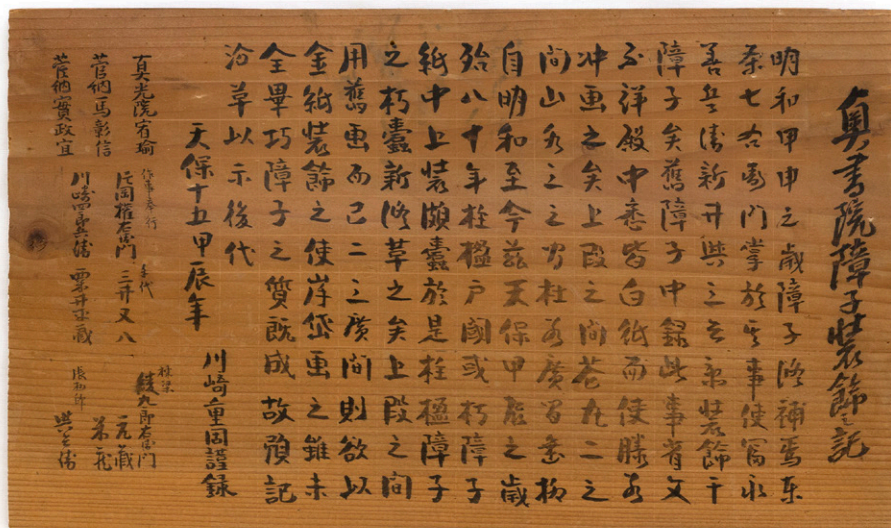 奥書院障子装飾之記
明和甲申之歳障子修補焉菴
七右衛門掌於其事使冨永
善兵衛新井與三兵衛装飾于
障子矣舊障子中録此事有文
不詳殿中悉皆白紙而使勝
冲画之矣上段之間 二之
間山水三之間杜若廣間岳柳
自明和至今茲天保甲辰之歳
殆八十年柱楹戸國或朽障子
紙中上装頗蠹於是柱楹障子
之朽蠹新修草之矣上段之間
用舊画而已二三廣間則欲以
金紙装飾之使岸岱画之雖未
全畢巧障子之質既成故預記
洽草以示後代
天保十五甲辰年
川崎重固謹録
真光院宥瑜
菅納一馬彰信
菅納實政宜
作事奉行
片岡權右衛門
川崎四與衛
手代
三井又八
栗井 蔵
棟梁
綾九郎右衛門
元蔵
弟飛
張物師
與七衛